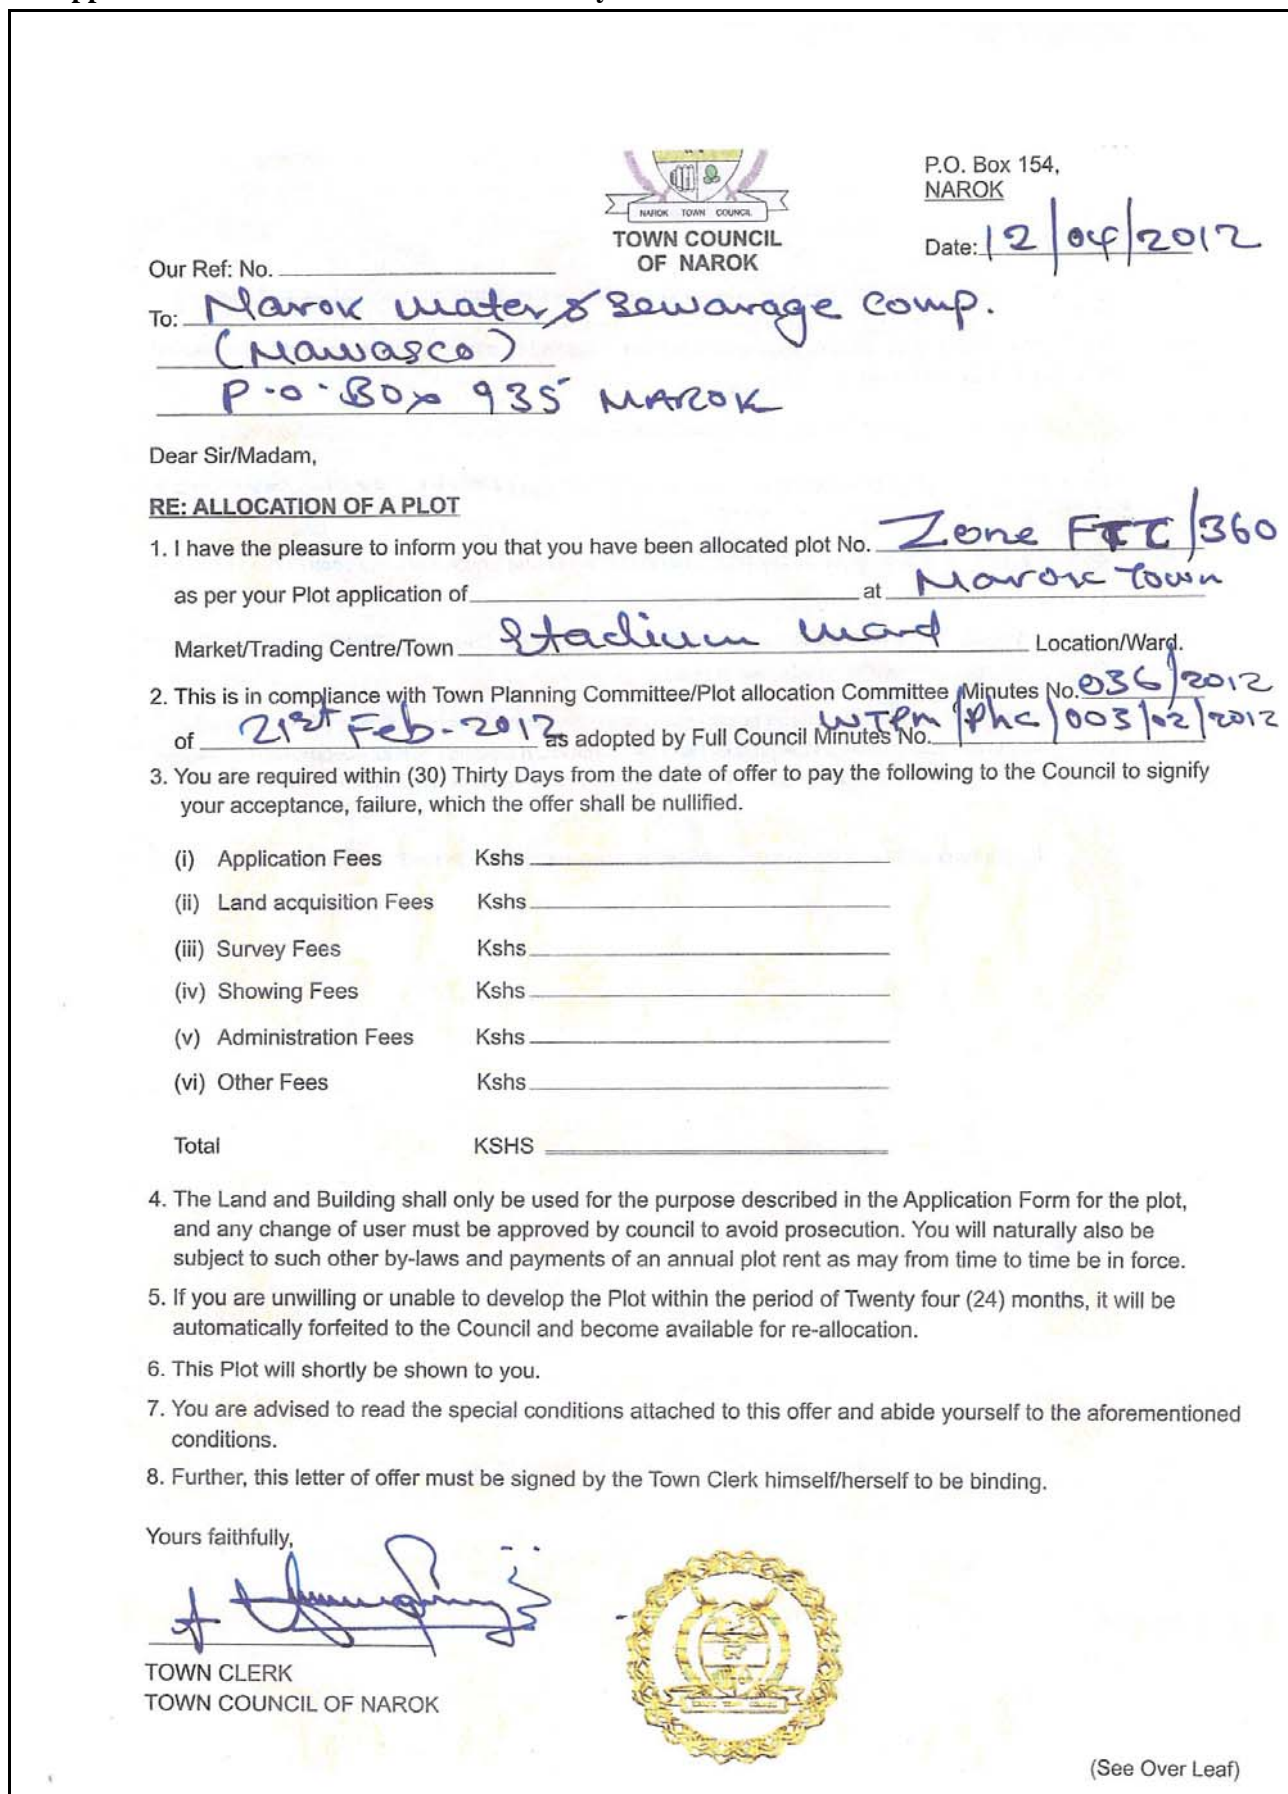 NAROK TOWN COUNCIL
TOWN COUNCIL
OF NAROK
P.O. Box 154,
NAROK
Date: 12/04/2012
Our Ref: No.
To: Narok water & Sewarage Comp.
(Nawasco)
P.O. Box 935 NAROK
Dear Sir/Madam,
RE: ALLOCATION OF A PLOT
1. I have the pleasure to inform you that you have been allocated plot No. Zone /360
as per your Plot application of at Narok Town
Market/Trading Centre/Town Stadium Ward Location/Ward.
2. This is in compliance with Town Planning Committee/Plot allocation Committee Minutes No. 036/2012
of 21st Feb-2012 as adopted by Full Council Minutes No. WTPM/Phc/003/02/2012
3. You are required within (30) Thirty Days from the date of offer to pay the following to the Council to signify
your acceptance, failure, which the offer shall be nullified.
(i) Application Fees Kshs
(ii) Land acquisition Fees Kshs
(iii) Survey Fees Kshs
(iv) Showing Fees Kshs
(v) Administration Fees Kshs
(vi) Other Fees Kshs
Total KSHS
4. The Land and Building shall only be used for the purpose described in the Application Form for the plot,
and any change of user must be approved by council to avoid prosecution. You will naturally also be
subject to such other by-laws and payments of an annual plot rent as may from time to time be in force.
5. If you are unwilling or unable to develop the Plot within the period of Twenty four (24) months, it will be
automatically forfeited to the Council and become available for re-allocation.
6. This Plot will shortly be shown to you.
7. You are advised to read the special conditions attached to this offer and abide yourself to the aforementioned
conditions.
8. Further, this letter of offer must be signed by the Town Clerk himself/herself to be binding.
Yours faithfully,
TOWN CLERK
TOWN COUNCIL OF NAROK
(See Over Leaf)